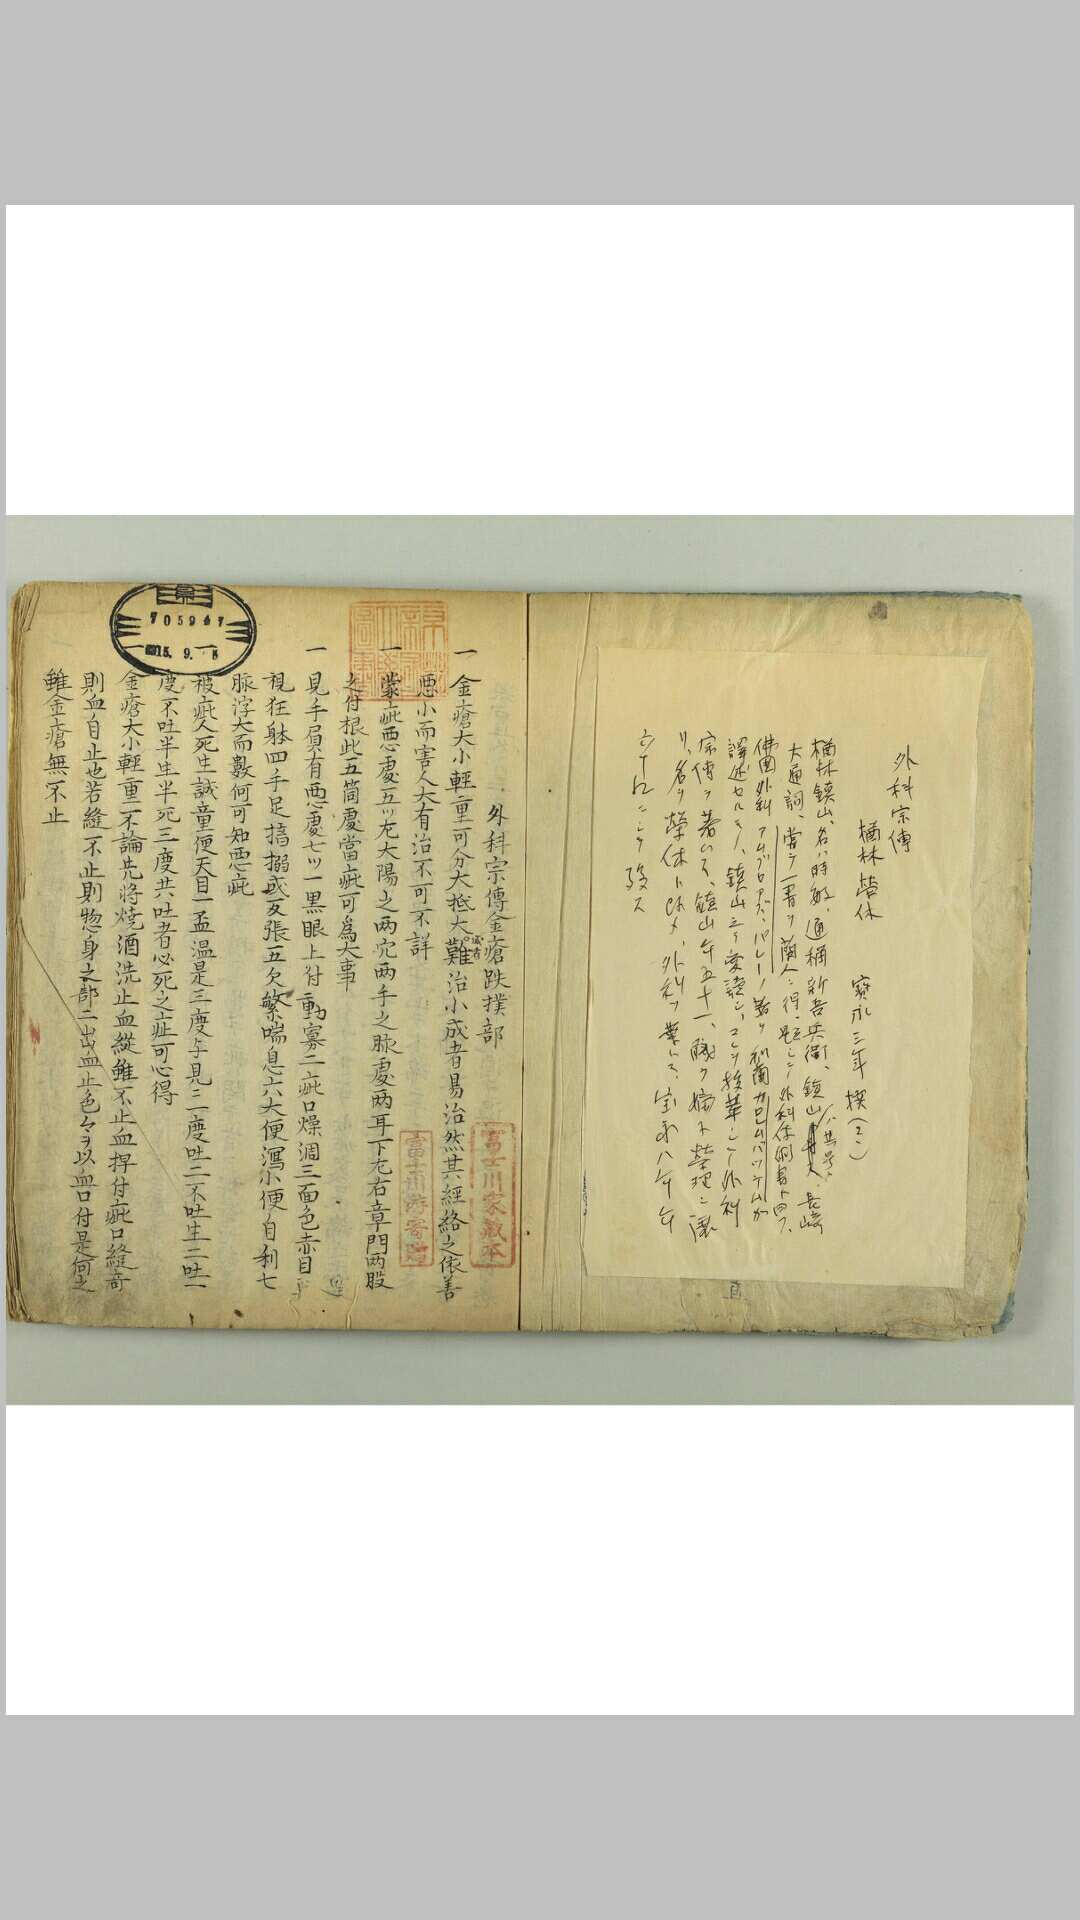 外科宗傳
楢林榮休
寳永三年撰(ニ)
楢林鎮山、名ハ時敏、通稱新吾兵衛、鎮山ハ其号、長崎
大通詞、嘗テ一書ヲ蘭人ニ得、
佛國外科アムブロアズ、パレーノ著ヲ和蘭カロルムバッテムガ
譯述セルモノ、鎮山之ヲ愛讀シ、コレヲ抜萃シテ外科
宗傳ヲ著ハス、鎮山年五十一、職ヲ
リ、名ヲ榮休ト改メ、外科ヲ業トス、宝永八年年
六十四ニシテ歿ス
外科宗傳金瘡跌撲部
一金瘡大小輕重可分大抵大難治小成者易治然其經絡之依善
悪小而害人大有治不可不詳
一蒙疵悪處五ツ左大陽之两穴两手之脉處两耳下左右章門两股
之付根此五箇處當疵可爲大事
一見手負有悪處七ツ一黒眼上付動寡二疵口燥凋三面色赤目
視狂躰四手足搐搦或反張五欠繁喘息六大便瀉小便自利七
脉浮大而數何可知悪疵
一被疵人死生試童便天目一盃温是三度与見二一度吐二不吐生二吐一
度不吐半生半死三度共吐者必死之症可心得
一金瘡大小輕重二不論先將焼酒洗止血縱雖不止血押付疵口縫寄
則血自止也若縫不止則惣身之部二出血止色々ヲ以血口付是何之
雖金瘡無不止
富士川家藏本
富士川游寄贈
705947
1915.9.-8